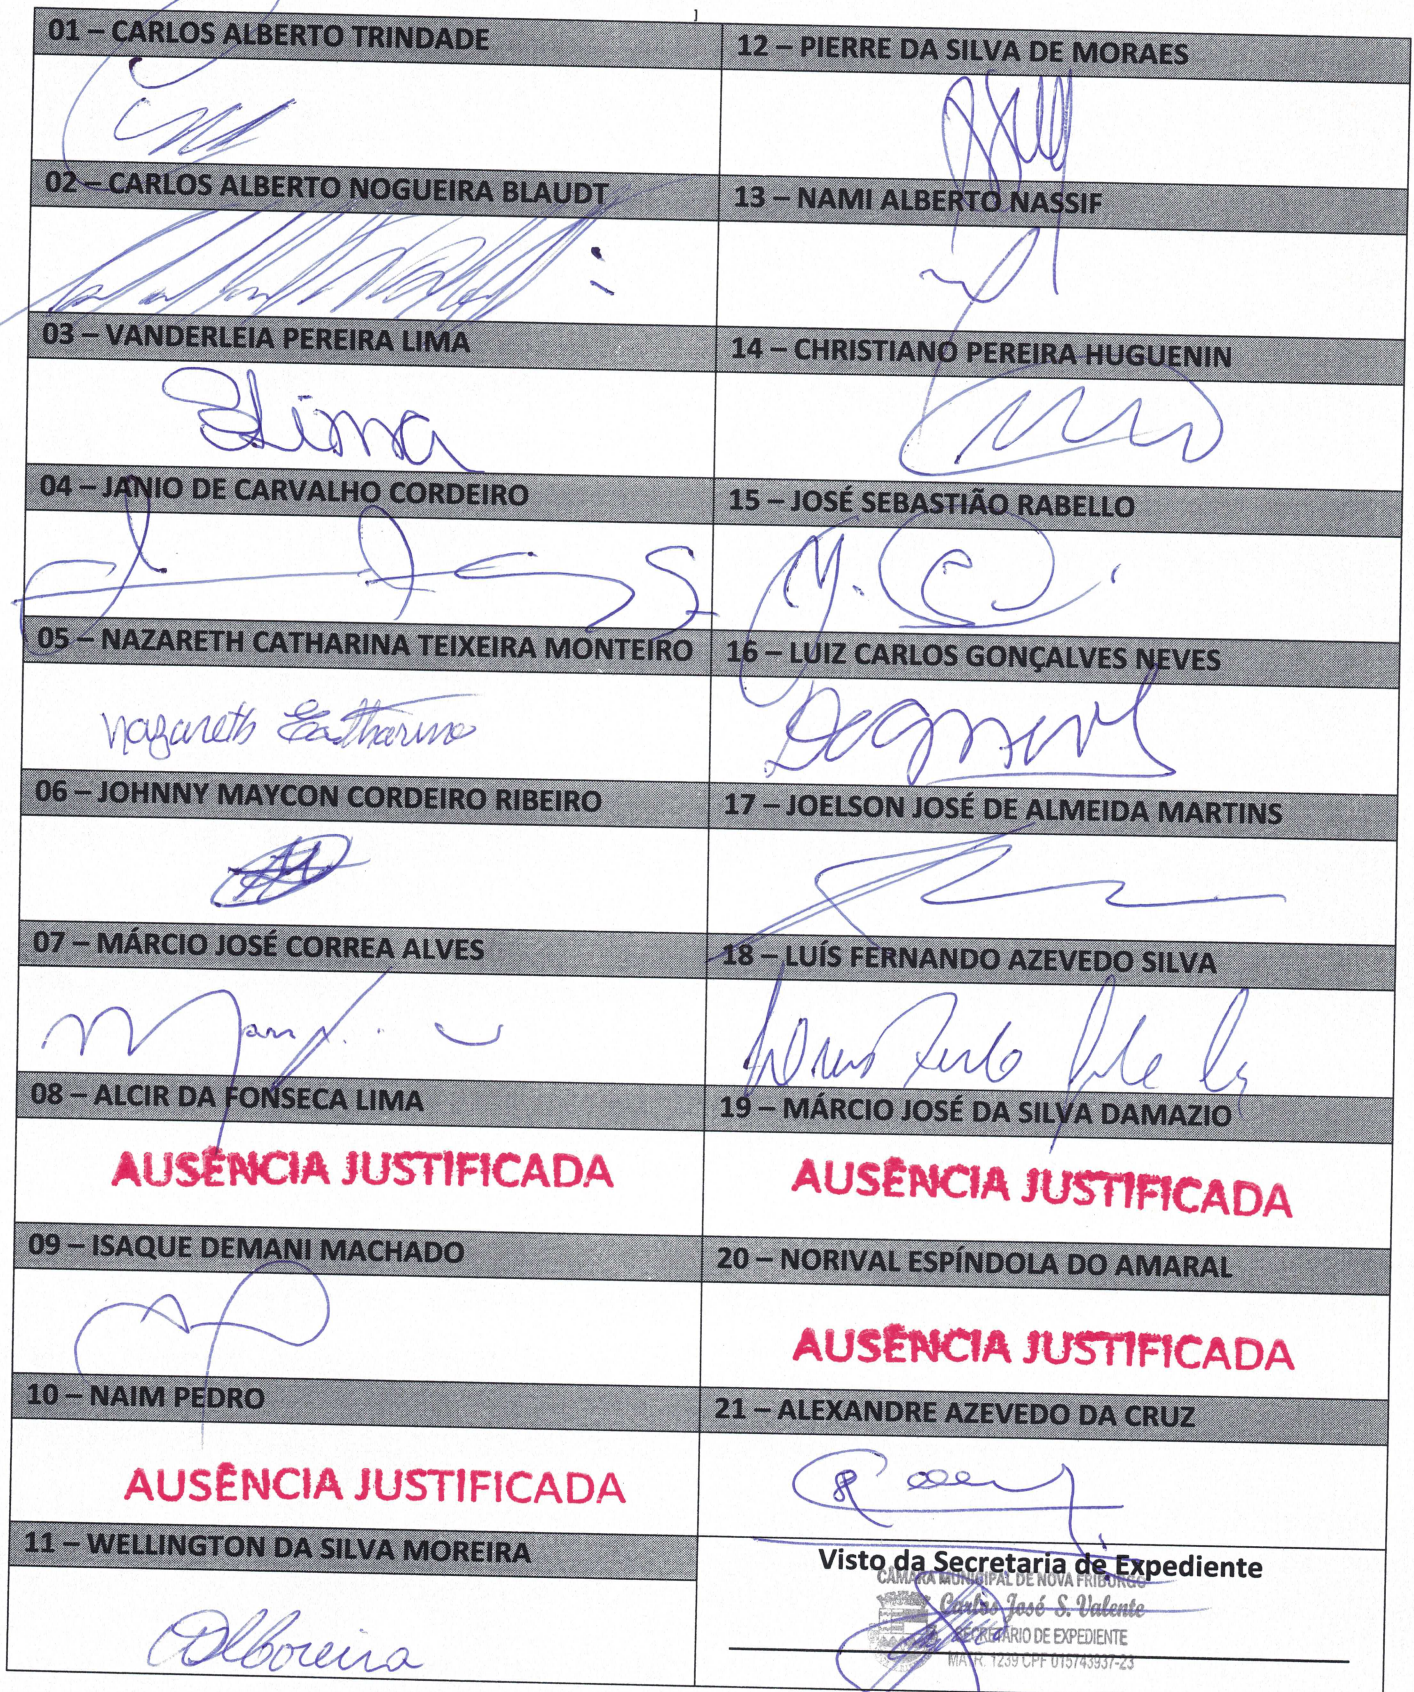 01 – CARLOS ALBERTO TRINDADE
02 – CARLOS ALBERTO NOGUEIRA BLAUDT
03 – VANDERLEIA PEREIRA LIMA
Lima
04 – JANIO DE CARVALHO CORDEIRO
05 – NAZARETH CATHARINA TEIXEIRA MONTEIRO
Nazareth Catharina
06 – JOHNNY MAYCON CORDEIRO RIBEIRO
07 – MÁRCIO JOSÉ CORREA ALVES
08 – ALCIR DA FONSECA LIMA
AUSÊNCIA JUSTIFICADA
09 – ISAQUE DEMANI MACHADO
10 – NAIM PEDRO
AUSÊNCIA JUSTIFICADA
11 – WELLINGTON DA SILVA MOREIRA
12 – PIERRE DA SILVA DE MORAES
13 – NAMI ALBERTO NASSIF
14 – CHRISTIANO PEREIRA HUGUENIN
15 – JOSÉ SEBASTIÃO RABELLO
16 – LUIZ CARLOS GONÇALVES NEVES
17 – JOELSON JOSÉ DE ALMEIDA MARTINS
18 – LUÍS FERNANDO AZEVEDO SILVA
19 – MÁRCIO JOSÉ DA SILVA DAMAZIO
AUSÊNCIA JUSTIFICADA
20 – NORIVAL ESPÍNDOLA DO AMARAL
AUSÊNCIA JUSTIFICADA
21 – ALEXANDRE AZEVEDO DA CRUZ
Visto da Secretaria de Expediente
CÂMARA MUNICIPAL DE NOVA FRIBURGO
Carlos José S. Valente
SECRETÁRIO DE EXPEDIENTE
MATR. 1239 CPF 015743937-23